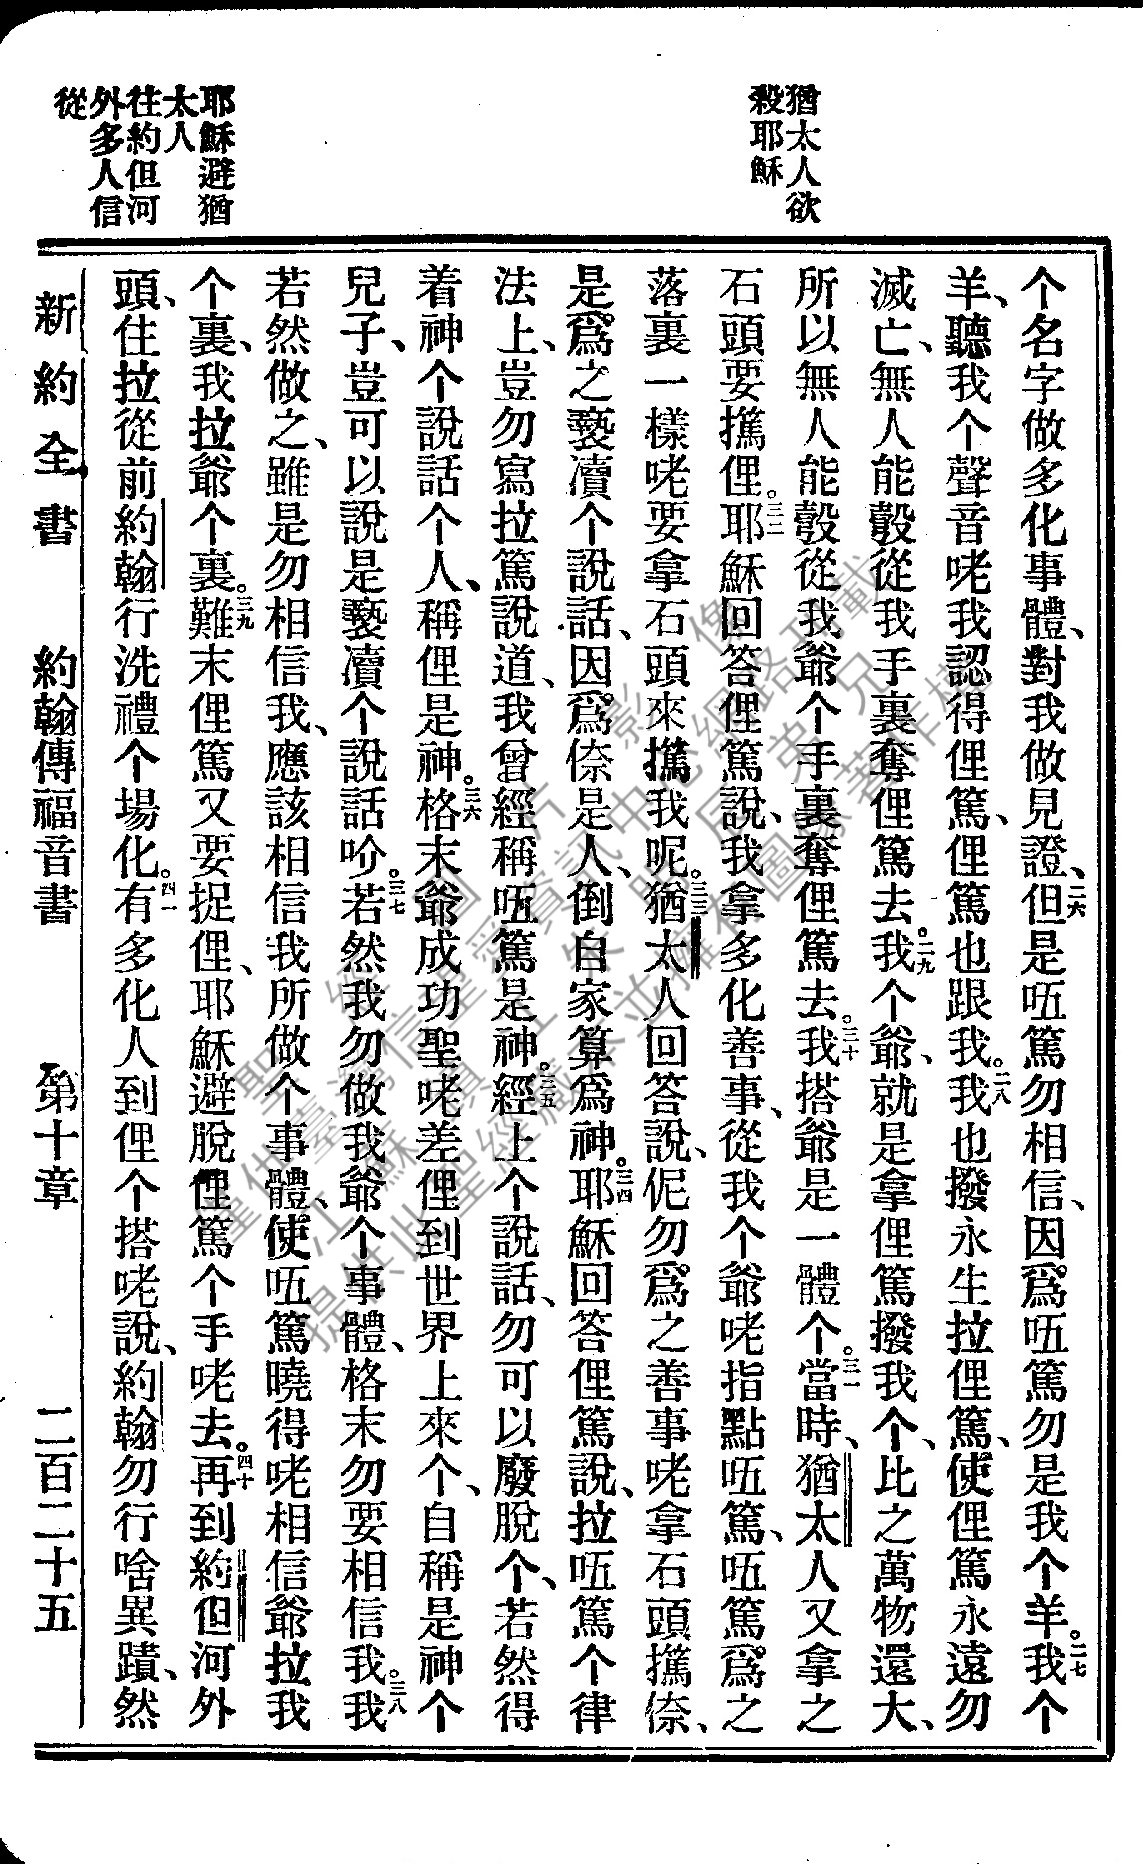 猶太人欲
殺耶穌
耶穌避猶
太人
往約但河
外多人信
從
个名字做多化事體、對我做見證、二六但是㕶篤勿相信、因爲㕶篤勿是我个羊。二七我个
羊、聽我个聲音咾我認得俚篤、俚篤也跟我。二八我也撥永生拉俚篤、使俚篤永遠勿
滅亡、無人能彀從我手裏奪俚篤去。二九我个爺、就是拿俚篤撥我个、比之萬物還大、
所以無人能彀從我爺个手裏奪俚篤去。三十我搭爺是一體个。三一當時、猶太人又拿之
石頭要攜俚。三二耶穌回答俚篤說、我拿多化善事、從我个爺咾指點㕶篤、㕶篤爲之
落裏一樣咾要拿石頭來攜我呢。三三猶太人回答說、伲勿爲之善事咾拿石頭攜倷、
是爲之褻瀆个說話、因爲倷是人、倒自家算爲神。三四耶穌回答俚篤說、拉㕶篤个律
法上、豈勿寫拉篤說道、我曾經稱㕶篤是神。三五經上个說話、勿可以廢脫个、若然得
着神个說話个人、稱俚是神。三六格末爺成功聖咾差俚到世界上來个、自稱是神个
兒子、豈可以說是褻瀆个說話吤。三七若然我勿做我爺个事體、格末勿要相信我。三八我
若然做之、雖是勿相信我、應該相信我所做个事體、使㕶篤曉得咾相信爺拉我
个裏、我拉爺个裏。三九難末俚篤又要捉俚、耶穌避脫俚篤个手咾去。四十再到約但河外
頭、住拉從前約翰行洗禮个場化。四一有多化人到俚个搭咾說、約翰勿行啥異蹟、然
新約全書　約翰傳福音書　第十章　二百二十五